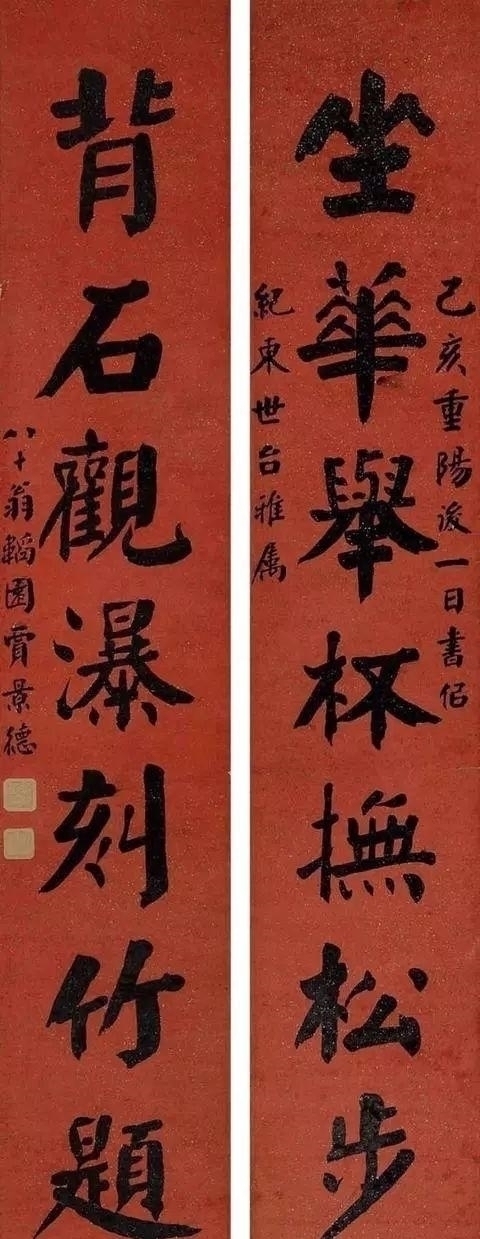 己亥重陽後一日書佀
坐華舉杯撫松步
紀東世台雅属
背石觀瀑刻竹題
八十翁韜園賈景德